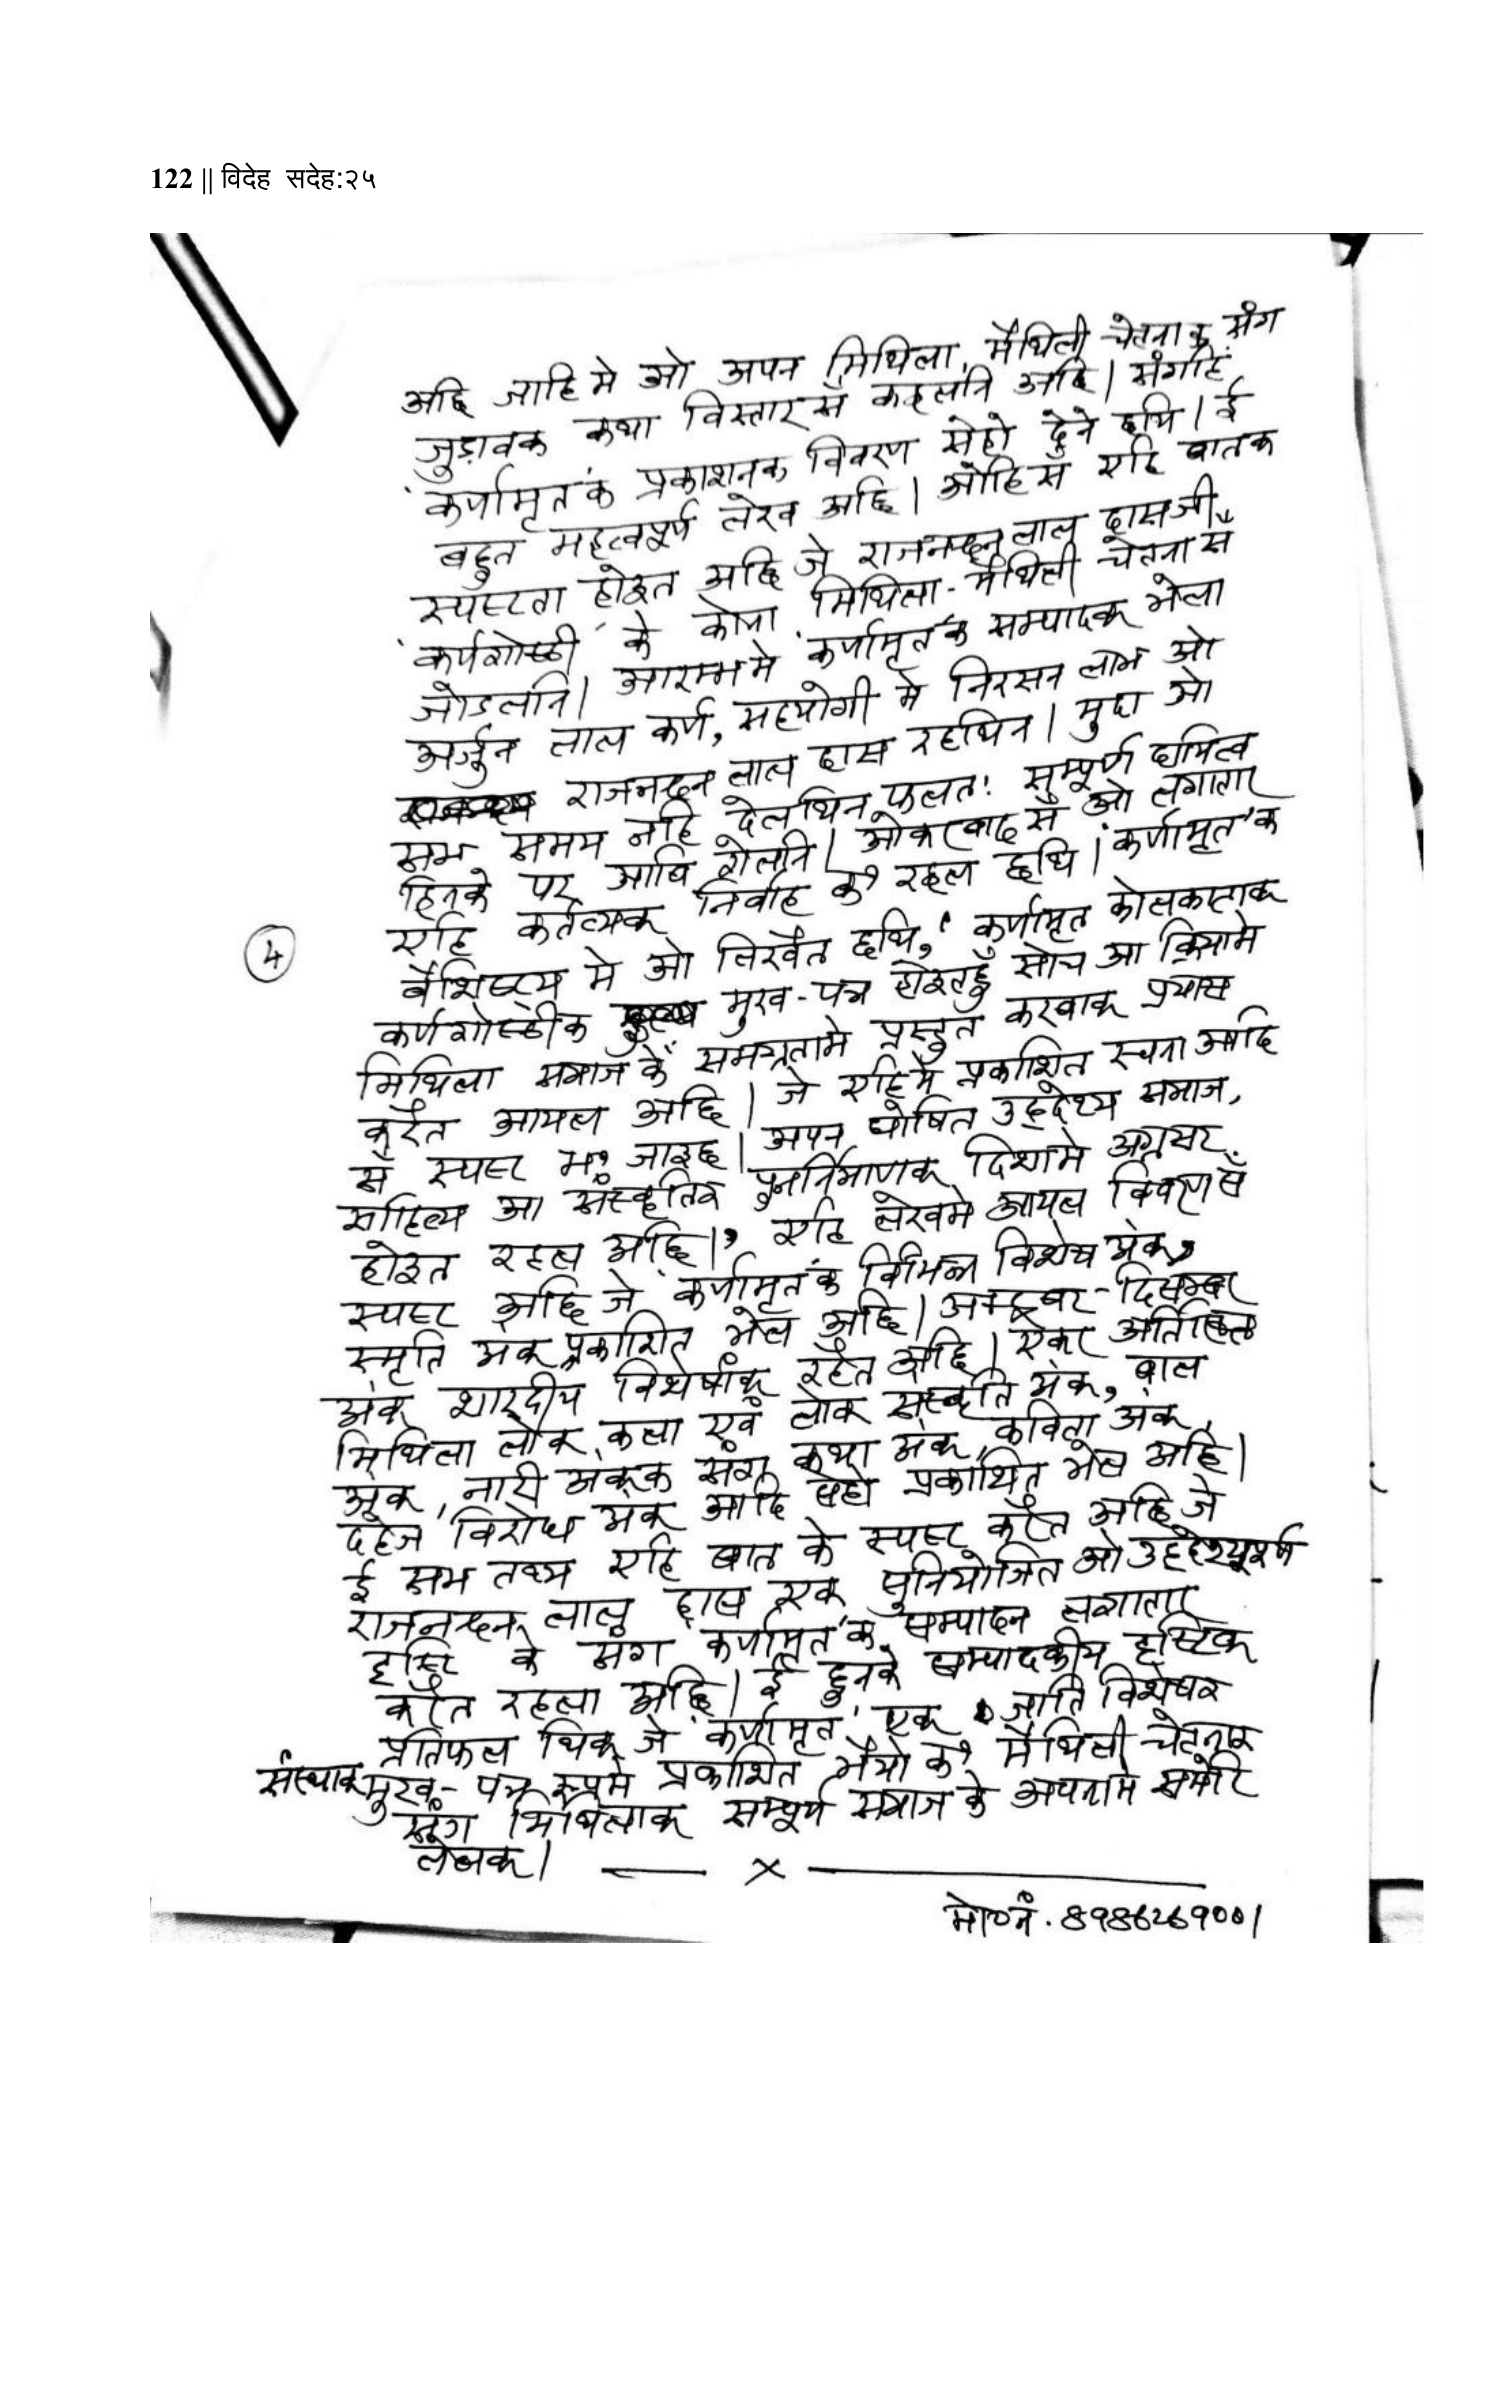 122 || विदेह सदेह:२५
अछि जाहि मे ओ अपन मिथिला, मैथिली चेतनाक संग
जुड़ावक कथा विस्तारसँ कहलनि अछि। संगहि
'कर्णामृत'क प्रकाशनक विवरण सेहो देने छथि। ई
बहुत महत्वपूर्ण लेख अछि। ओहिसँ एहि बातक
स्पष्टता होइत अछि जे राजनन्दन लाल दासजी
'कर्णगोष्ठी' के कोना मिथिला-मैथिली चेतनासँ
जोडलनि। आरम्भमे 'कर्णामृत'क सम्पादक भेला
अर्जुन लाल कर्ण, सहयोगी मे निरसन लाभ ओ
राजनन्दन लाल दास रहथिन। मुदा ओ
सभ समय नहि देलथिन फलत: सम्पूर्ण दायित्व
हिनके पर आबि गेलनि। ओकरबादसँ ओ लगातार
एहि कर्तव्यक निर्वाह कऽ रहल छथि। 'कर्णामृत'क
4
वैशिष्ट्य मे ओ लिखैत छथि, 'कर्णामृत कोलकाताक
कर्णगोष्ठीक मुख-पत्र होइतहुँ सोच आ क्रियामे
मिथिला समाजकेँ समग्रतामे प्रस्तुत करबाक प्रयास
करैत आयल अछि। जे एहिमे प्रकाशित रचना आदि
सँ स्पष्ट भऽ जाइछ। अपन घोषित उद्देश्य समाज,
साहित्य आ संस्कृतिक पुनर्निमाणक दिशामे अग्रसर
होइत रहल अछि।' एहि लेखमे आयल विवरणसँ
स्पष्ट अछि जे 'कर्णामृत'क विभिन्न विशेष अंक,
स्मृति अंक प्रकाशित भेल अछि। अक्टूबर-दिसम्बर
अंक शारदीय विशेषांक रहैत अछि। एकर अतिरिक्त
मिथिला लोक कला एवं लोक संस्कृति अंक, बाल
अंक, नारी अंकक संग कथा अंक, कविता अंक,
दहेज विरोध अंक आदि सेहो प्रकाशित भेल अछि।
ई सभ तथ्य एहि बात के स्पष्ट करैत अछि जे
राजनन्दन लाल दास एक सुनियोजित ओ उद्देश्यपूर्ण
दृष्टि के संग 'कर्णामृत'क सम्पादन लगातार
करैत रहला अछि। ई हुनके सम्पादकीय दृष्टिक
प्रतिफल थिक जे 'कर्णामृत' एक जाति विशेषक
संस्थाक मुख-पत्र रूपमे प्रकाशित भैयो कऽ मैथिली चेतनाक
संग मिथिलाक सम्पूर्ण समाज के अपनामे समेटि
लेलक।
—— x ——
मो०नं. 8986269001